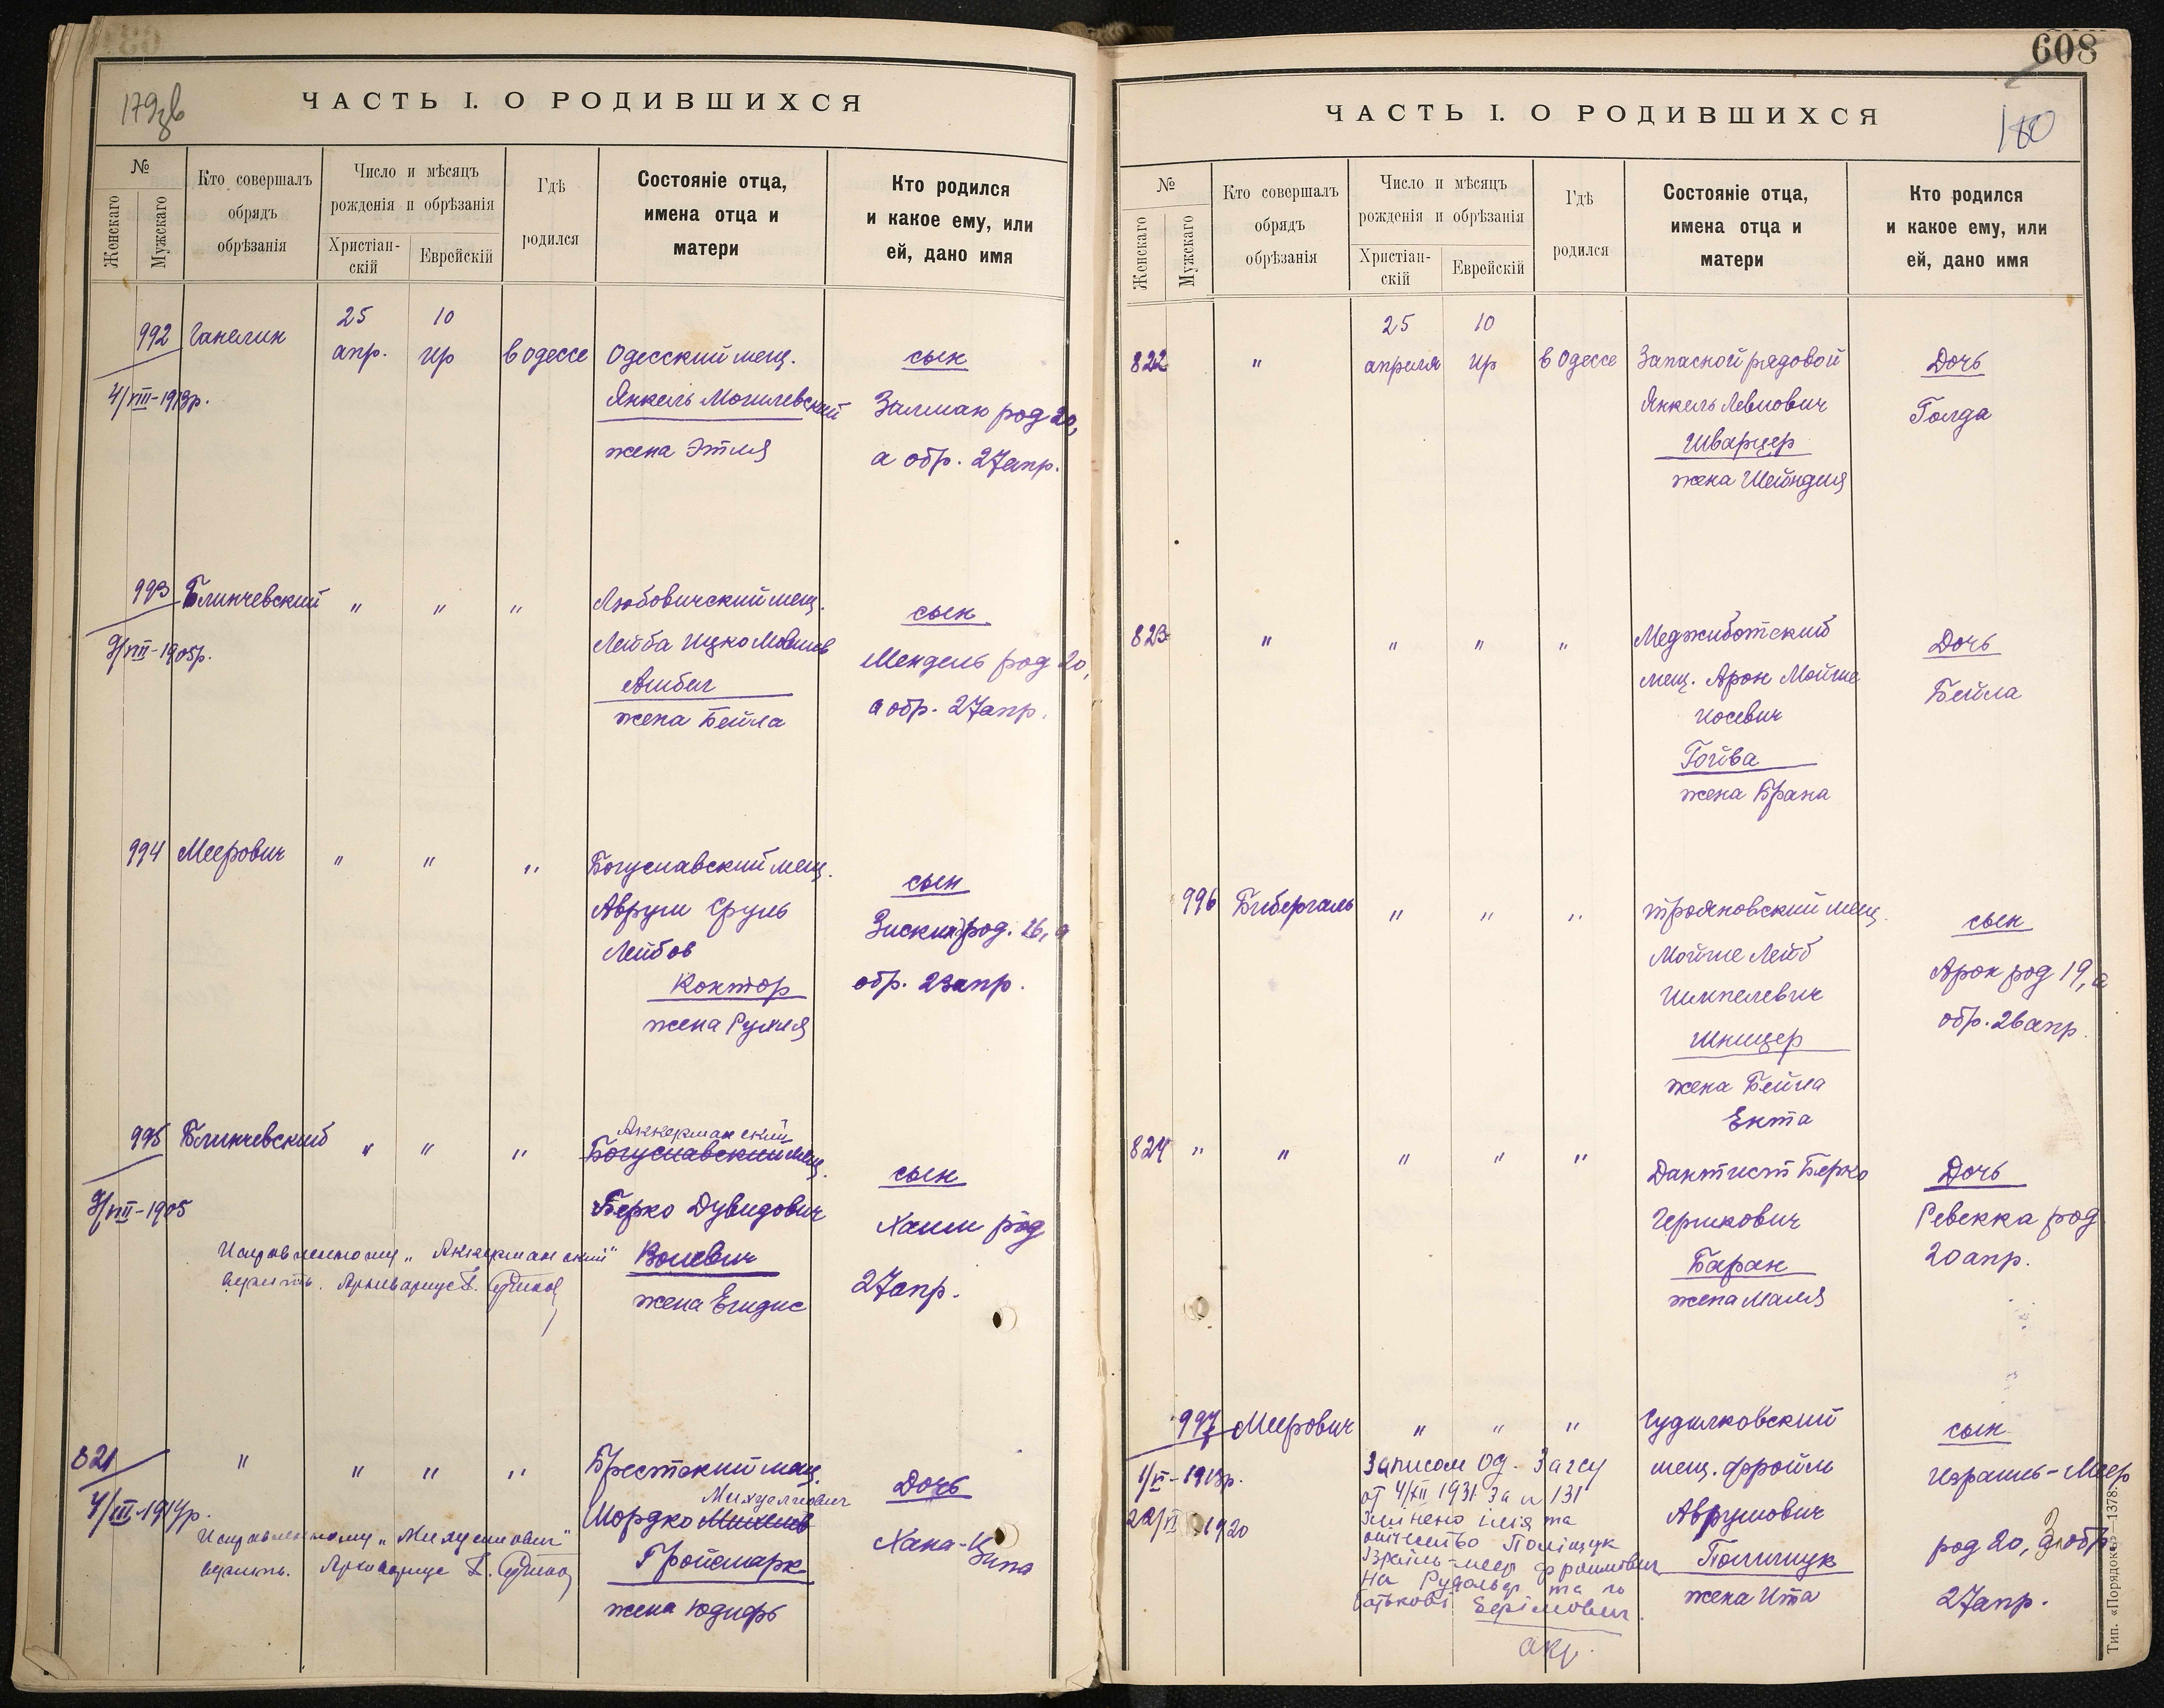 179зв
ЧАСТЬ I. О РОДИВШИХСЯ
№
Женскаго
Мужскаго
Кто совершалъ
обрядъ
обрѣзанія
Число и мѣсяцъ
рожденія и обрѣзанія
Христіан-
скій
Еврейскій
Гдѣ
родился
Состояніе отца,
имена отца и
матери
Кто родился
и какое ему, или
ей, дано имя
992 Ганелин 25 апр. 10 ир в одессе Одесский мещ.
Янкель Могилевский
жена Этля
сын
Залман род 20,
а обр. 27 апр.
4/VIII-1913р.
993 Блинчевский " " " Любовичский мещ.
Лейба Ицко
жена Бейла
сын
Мендель род 20,
а обр. 27 апр.
9/VIII-1905р.
994 Меерович " " " Богуславский мещ.
Аврум Сруль
Лейбов
Контор
жена Рухля
сын
Зискинд род. 16, а
обр. 23 апр.
995 Блинчевский " " " Аккерманский
Богуславский мещ.
Берко Дувидович
жена
сын
Хаим род
27 апр.
9/VIII-1905
Исправленному „Аккерманский"
верить. Архивариус
821 " " " " Брестский мещ.
Михуелиович
Мордко
Гройсмарк
жена Юдифь
Дочь
Хана-
4/III-1914р.
Исправленному
верить. Архивариус
608
180
ЧАСТЬ I. О РОДИВШИХСЯ
№
Женскаго
Мужскаго
Кто совершалъ
обрядъ
обрѣзанія
Число и мѣсяцъ
рожденія и обрѣзанія
Христіан-
скій
Еврейскій
Гдѣ
родился
Состояніе отца,
имена отца и
матери
Кто родился
и какое ему, или
ей, дано имя
822 " 25 апреля 10 ир в Одессе Запасной рядовой
Янкель Левиович
Шварцер
жена Шейндля
Дочь
Голда
823 " " " " Меджиботский
мещ. Арон Мойше
Иосевич
Гойва
жена Брана
Дочь
Бейла
996 Бибергаль " " " трояновский мещ.
Мойше Лейб
Шницер
жена Бейла
Ента
сын
Арон род 19, а
обр. 26 апр.
824 " " " " " Дантист Берко
Гершкович
Баран
жена Маля
Дочь
Ревекка род
20 апр.
997 Меерович " " " Судилковский
мещ. Фройм
Аврумович
Полищук
жена Ита
сын
Израиль-Меер
род 20, а обр.
27 апр.
1/VI-1913р.
22/VI 1920
Записом Од. Загсу
от 4/XII 1931 за n 131
змінено імія та
отчество Поліщук
Ізраїль-меер Фроимович
на Рудольф та по
батькові Єфімович.
Тип. «Порядокъ»—1378.